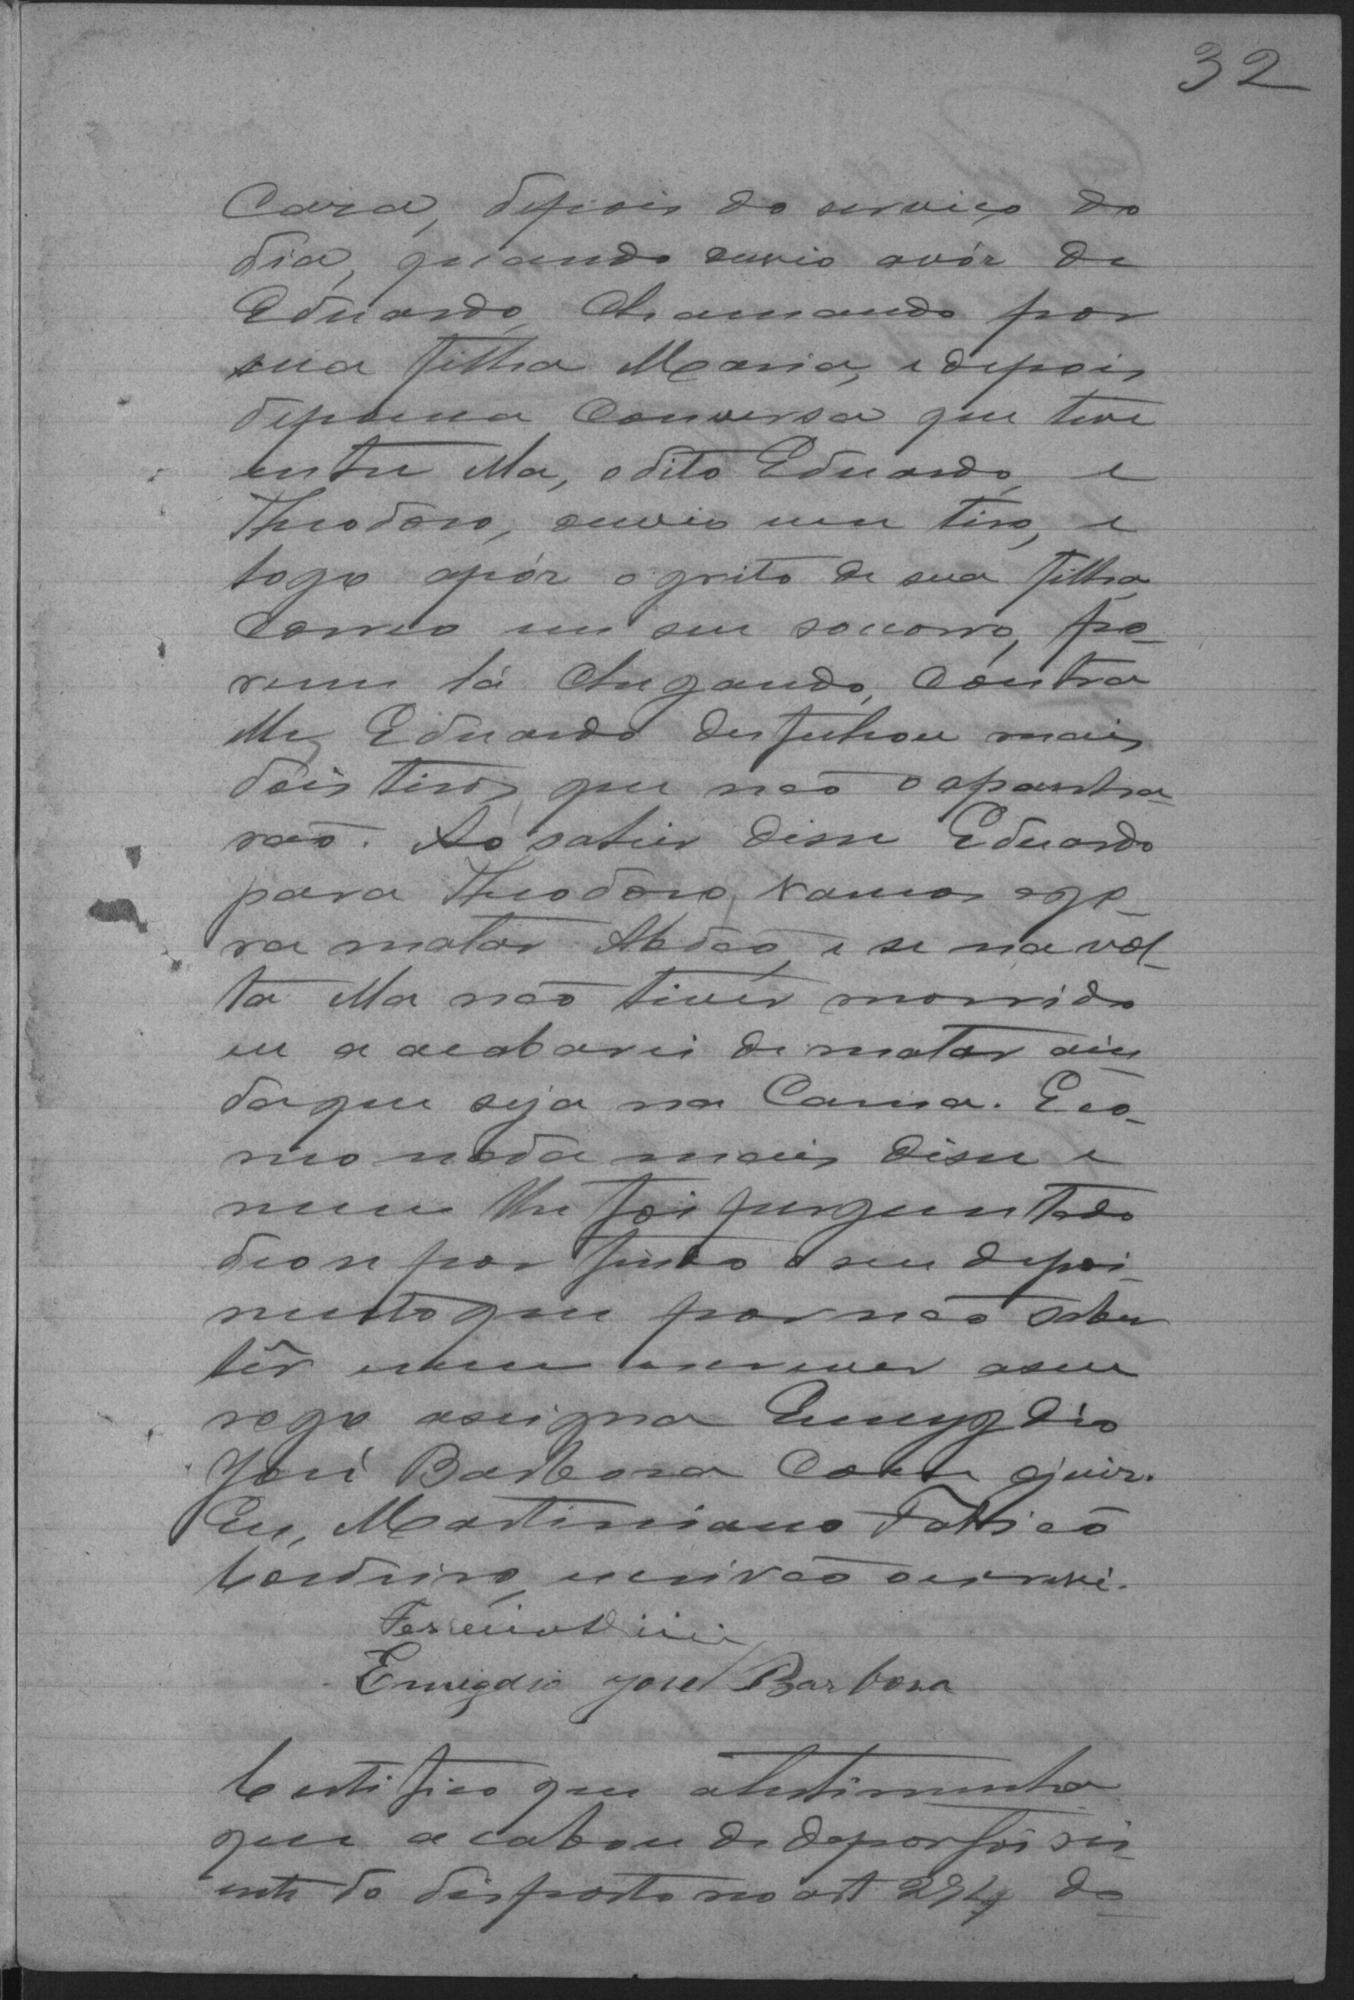 32
Casa, depois do serviço do
dia, quando ouvio avóz de
Eduardo, chamando por
sua filha Maria, e depois
depouca conversa que teve
entre ella, odito Eduardo, e
Theodoro, ouvio um tiro, e
logo apóz ogrito de sua filha
correo em seu soccorro, po-
rem lá chegando, contra
elle Eduardo desfechou mais
dois tiros, que não oapanha-
rão. Ao sahir disse Eduardo
para Theodoro, vamos ago-
ra matar Abdão, e se na vol-
ta ella não tiver morrido
eu a acabarei de matar ain
daque seja na Cama. E co-
mo nada mais disse e
nem lhe foi perguntado
deose por findo o seu depoi-
mento que por não saber
lêr nem escrever aseu
rogo assigna Emygdio
José Barbosa com ojuiz.
Eu, Martiniano
Cordeiro, escrivão oescrevi.
Emigdio José Barbosa
Certifico que atestimunha
que acabou de depor foi sci-
ente do disposto no art 294 do